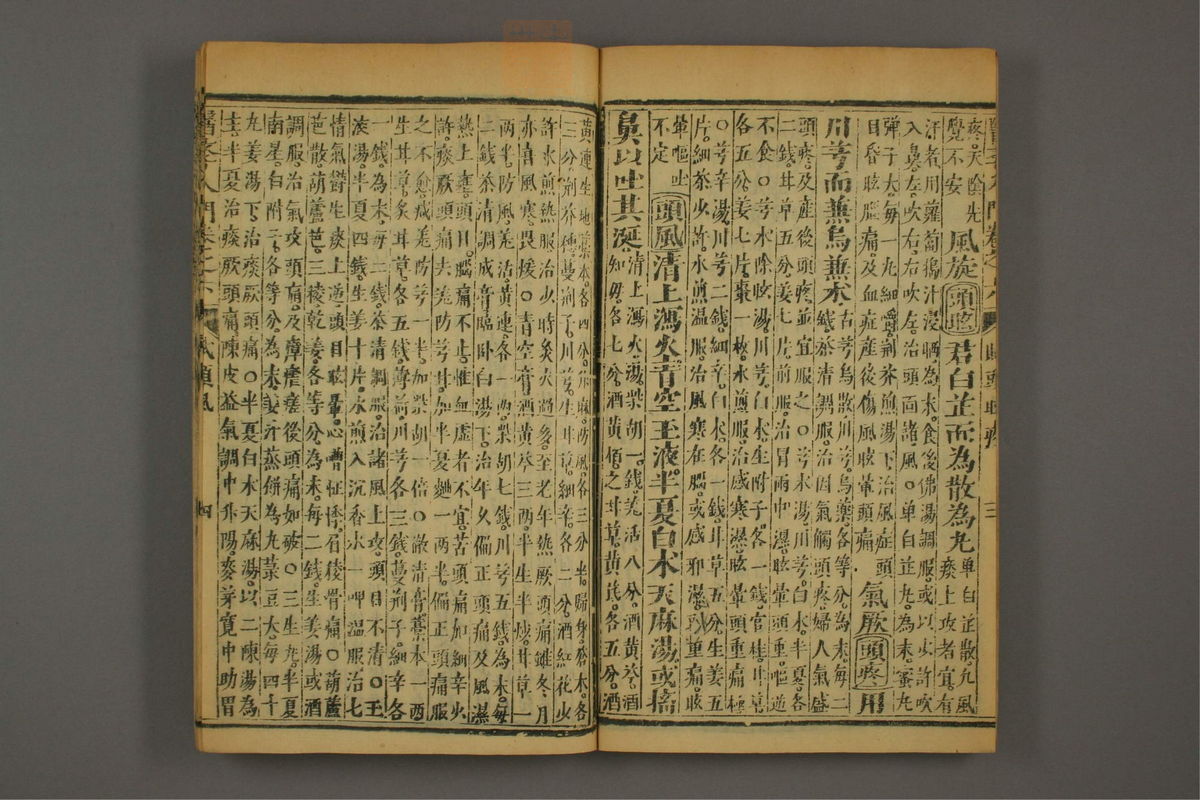 疼。天陰先
覺不安
風旋頭眩君白芷而為散為丸
單白芷散。凡風
痰上攻者宜。有
汗者用蘿蔔搗汁浸晒為末食後沸湯調服。或以少許吹
入鼻。左吹右。右吹左。治頭面諸風○單白芷丸。為末。蜜丸
彈子大。每一丸。細嚼荊芥煎湯下。治風症頭
目昏眩腦痛。及血症產後傷風眩暈頭痛。
氣厥頭疼用
川芎而兼烏兼朮
古芎烏散川芎。烏藥各等分。為末。每二
錢茶清調服。治因氣觸頭疼。婦人氣盛
頭疼。及產後頭疼。並宜服之○芎朮湯。川芎。白朮。半夏。各
二錢。甘草五分。姜七片。前服。治冒雨中濕。眩暈頭重。嘔逆
不食○芎朮除眩湯。川芎。白朮。生附子。各一錢。官桂。甘草
各五分。姜七片。棗一枚。水煎服。治感寒濕眩暈頭重痛極
○芎辛湯。川芎二錢。細辛。白朮。各一錢。甘草五分。生姜五
片。細茶少許。水煎溫服。治風寒在腦。或感邪濕。頭重痛。眩
暈嘔吐
不定
頭風清上瀉火青空玉液半夏白朮天麻湯或搐
鼻以吐其涎
清上瀉火湯。柴胡一錢。羌活八分。酒黃芩。酒
知母。各七分。酒黃栢。炙甘草。黃芪。各五分。酒
醫學入門卷之六
三
黃連。生地。藁本。各四分。升麻。防風。各三分半。歸身。蒼朮。各
三分。荊芥穗。蔓荊子。川芎。生甘草。細辛。各二分。酒紅花少
許。水煎熱服。治少時灸火過多。至老年熱厥頭痛。雖冬月
亦喜風寒。畏煖○青空膏。酒黃芩三兩半生半炒。甘草一
兩半。防風。羌活。黃連。各一兩。柴胡七錢。川芎五錢。為末。每
二錢。茶清調成膏。臨臥白湯下。治年久偏正頭痛及風濕
熱上壅。頭目。腦痛不止。惟血虛者不宜。苦頭痛加細辛少
許。痰厥頭痛去羌防芎甘。加半夏麯一兩半。偏正頭痛服
之不愈。減羌防芎一半。加柴胡一倍。○徹清膏。藁本一錢
生甘草。炙甘草。各五錢。薄荷川芎各三錢。蔓荊子。細辛各
一錢。為末。每二錢。茶清調服。治諸風上攻。頭目不清○玉
液湯。半夏四錢。生姜十片。水煎入沉香水一呷溫服。治七
情氣鬱生痰上逆。頭目眩暈。心嘈怔悸。眉稜骨痛○葫蘆
芭散。葫蘆芭。三稜。乾姜。各等分為末。每二錢。生姜湯或酒
調服。治氣攻頭痛。及瘴瘧瘥後頭痛如破○三生丸。半夏
南星。白附子。各等分。為末。姜汁蒸餅為丸菉豆大。每四十
丸。姜湯下。治痰厥頭痛。○半夏白朮天麻湯。以二陳湯為
主。半夏治痰厥頭痛。陳皮益氣調中升陽。麥芽寬中助胃
醫學入門卷之六
賦頭風
四